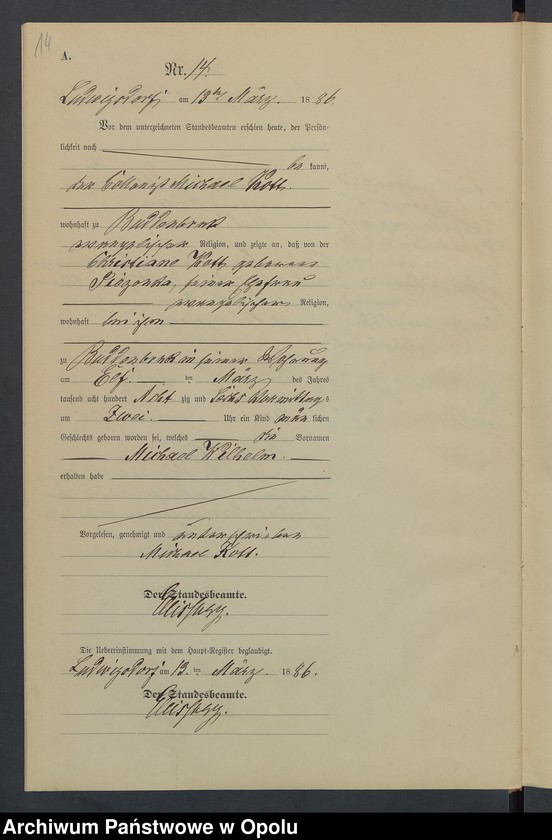 14
A.
Nr. 14.
Ludwigsdorf am 13ten März 1886.
Vor dem unterzeichneten Standesbeamten erschien heute, der Persön-
lichkeit nach
be kannt,
der Colonist Michael Kott
wohnhaft zu
evangelischer Religion, und zeigte an, daß von der
Christiane Kott geborenen
seiner Ehefrau
evangelischer Religion,
wohnhaft bei ihm
zu in seiner Wohnung
am Elf ten März des Jahres
tausend acht hundert Acht zig und Sechs Vormittags
um Zwei Uhr ein Kind männ lichen
Geschlechts geboren worden sei, welches die Vornamen
Michael Wilhelm.
erhalten habe
Vorgelesen, genehmigt und unterschrieben
Michael Kott.
Der Standesbeamte.
Die Uebereinstimmung mit dem Haupt-Register beglaubigt.
Ludwigsdorf am 13. ten März 1886.
Der Standesbeamte.
Archiwum Państwowe w Opolu